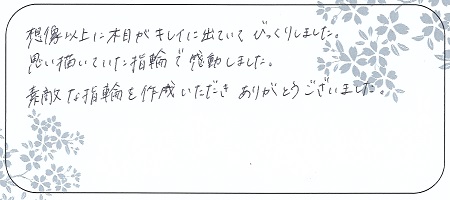 想像以上に木目がキレイに出ていてびっくりしました。
思い描いていた指輪で感動しました。
素敵な指輪を作成いただきありがとうございました。